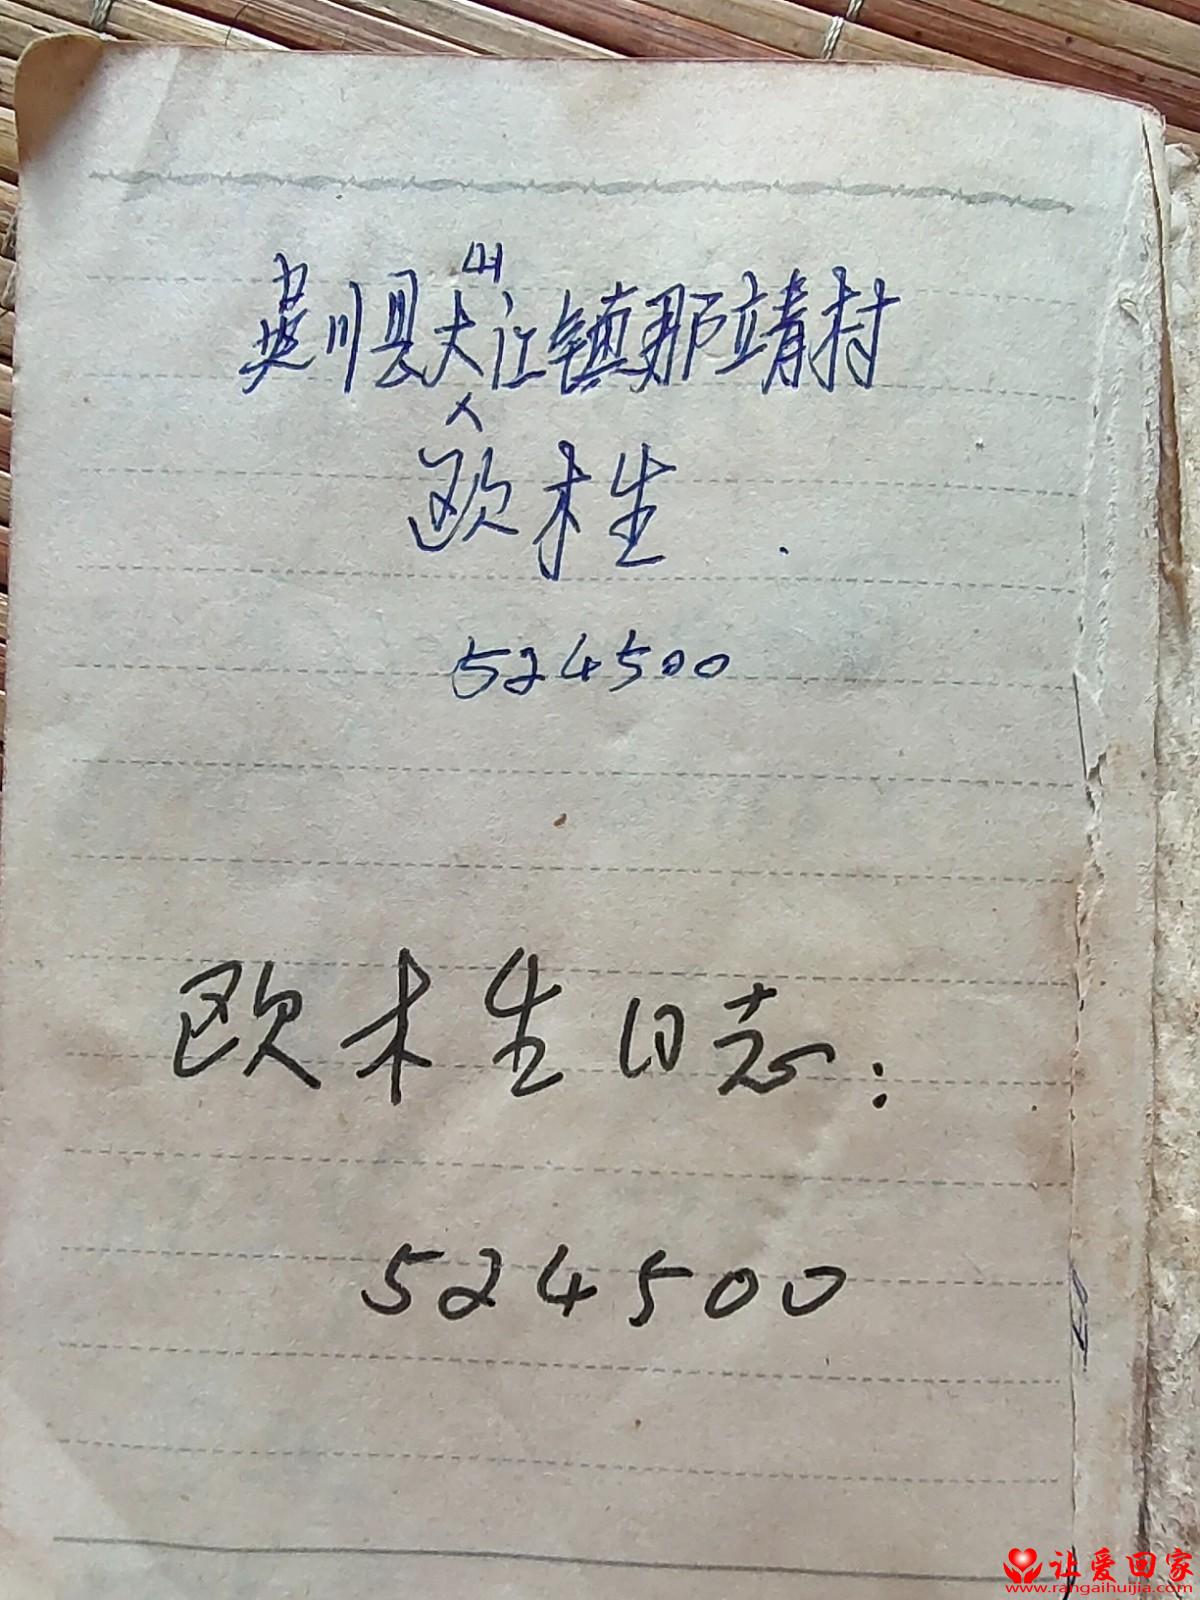 吴川县大山江镇那靖村
欧木生.
524500
欧木生日志：
524500
让爱回家
www.rangaihuijia.com